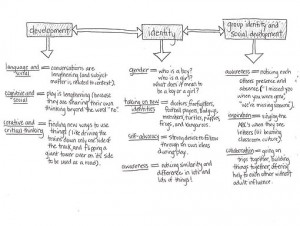 development
identity
group identity and
social development
language and
social = conversations are
lengthening (and subject
matter is related to content).
cognitive and
social = play is lengthening (because
they are sharing their own
thinking beyond the word "no".
creative and
critical thinking = finding new ways to use
things! (like driving the
trains down only one side of
the track, and flipping a
giant tower over on its' side
to be used as a road).
gender = who is a boy?
who is a girl?
what does it mean to
be a boy or a girl?
taking on new
identities = doctors, firefighters,
football players, family
members, turtles, puppies,
frogs, and kangaroos.
self-advocacy = strong desire to follow
through on own ideas
during play.
awareness = noticing similarity and
difference in lots and
lots of things!
awareness = noticing each
others presence and
absence! ("I missed you
when you were gone,"
"we're missing someone").
inspiration = singing the
ABC's when they see
letters (in learning
classroom culture).
collaboration = going on
trips together, building
things together, offering
help to each other without
adult influence.